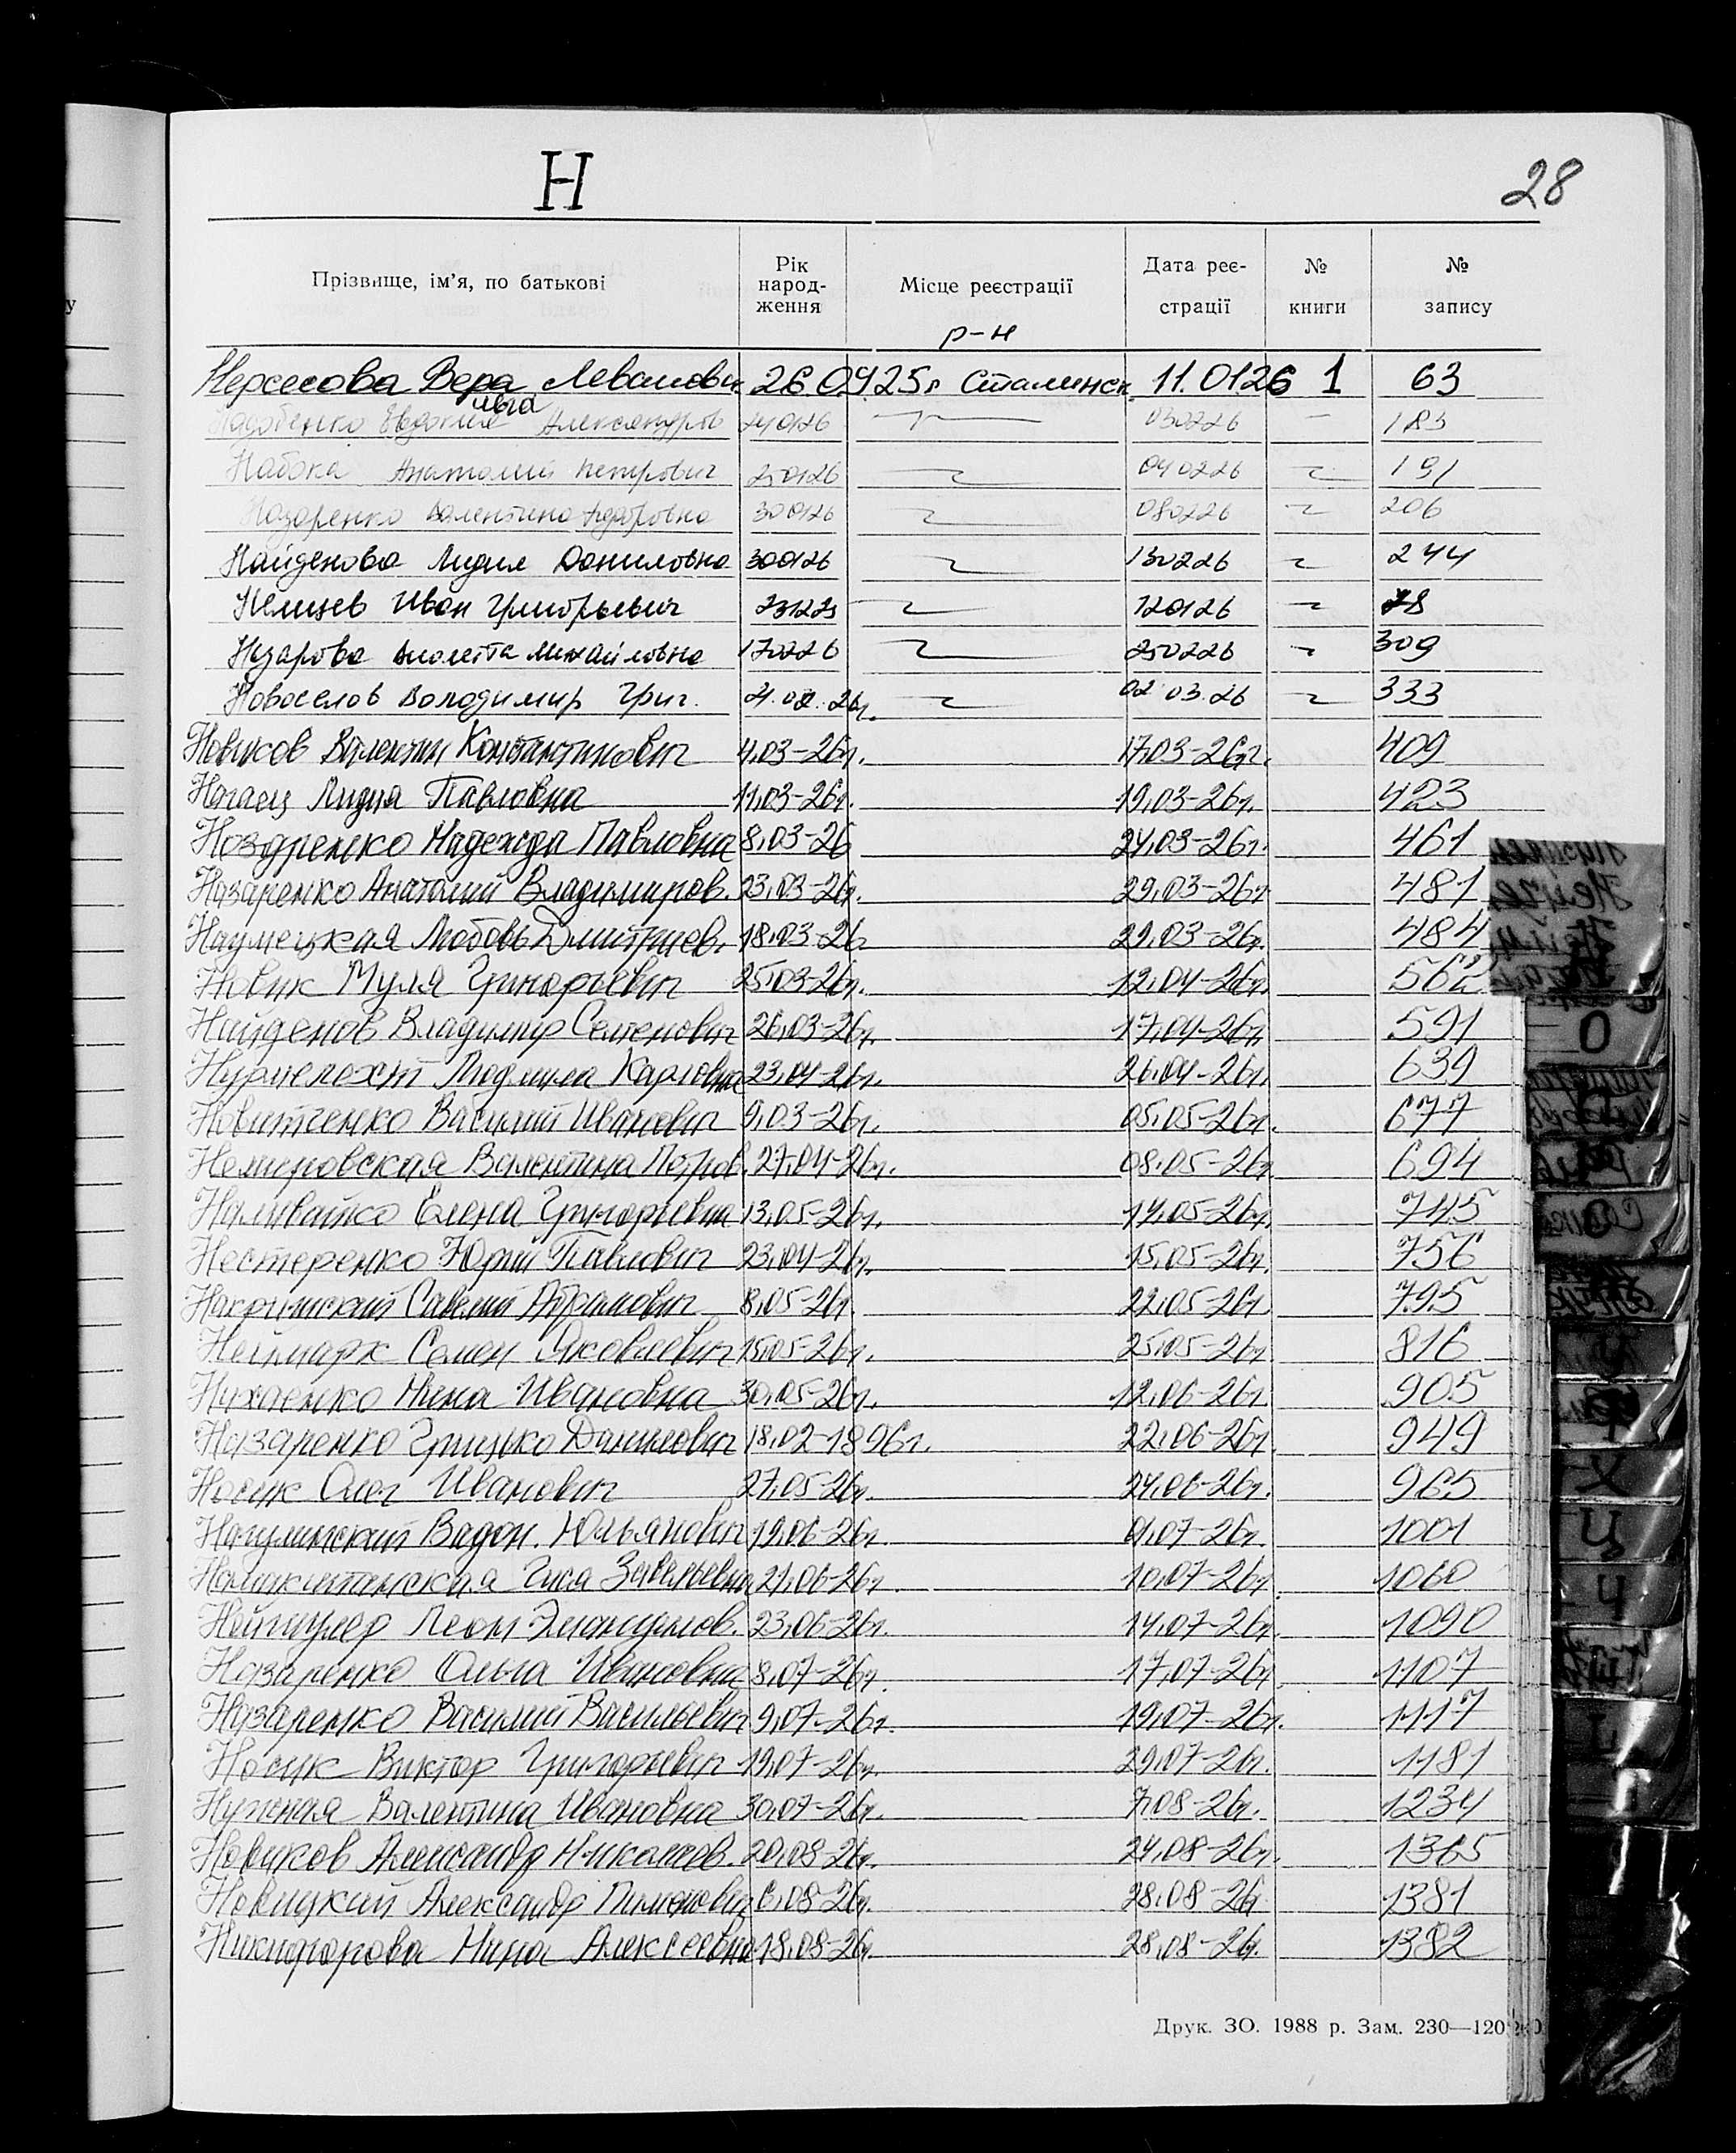 Н
28
Прізвище, ім'я, по батькові Рік народ-ження Місце реєстрації р-н Дата реє-страції № книги № запису
Нерсесова Вера Левановн 26.04.25г Сталинск 11.0126 1 63
Александров 240126 030226 183
Набока Анатолий Петрович 250126 040226 191
Назаренко Валентина 300126 080226 206
Найденова Лидия Даниловна 300126 130226 244
Иван Григорьевич 231225 120126 78
Назарова Виолетта Михайловна 170226 250226 309
Новоселов Володимир Григ. 02.03.26 333
Новиков Валентин Константинович 4,03-26г. 17,03-26г. 409
Ногаец Лидия Павловна 11,03-26г. 19,03-26г. 423
Ноздренко Надежда Павловна 8,03-26 24,03-26г. 461
Назаренко Анатолий Владимиров. 23,03-26г. 29,03-26г. 481
Наумецкая Любовь Дмитриев. 18,03-26 29,03-26г. 484
Новик Муля Григорьевич 25,03-26г. 12,04-26г. 562
Найденов Владимир Семенович 26,03-26г. 17,04-26г. 591
Людмила Карловна 23,04-26г. 26,04-26г. 639
Новитченко Василий Иванович 9,03-26г. 05,05-26г. 677
Немировская Валентина Петров. 27,04-26г. 08,05-26г. 694
Наливайко Елена Григорьевна 13,05-26г. 14,05-26г. 745
Нестеренко Юрий Павлович 23,04-26г. 15,05-26г. 756
Савелий Абрамович 8,05-26г. 22,05-26г. 795
Неймарк Семен Яковлевич 15,05-26г. 25,05-26г. 816
Нихаенко Нина Ивановна 30,05-26г. 12,06-26г. 905
Назаренко Грицько Данилович 18,02-1896г. 22,06-26г. 949
Носик Олег Иванович 27,05-26г. 24,06-26г. 965
Вадон. Юльянович 19,06-26г. 01,07-26г. 1001
21,06-26г. 10,07-26г. 1060
Нейшулер Леон 23,06-26г. 14,07-26г. 1090
Назаренко Ольга Ивановна 8,07-26г. 17,07-26г. 1107
Назаренко Василий Васильевич 9,07-26г. 19,07-26г. 1117
Носик Виктор Григорьевич 19,07-26г. 29,07-26г. 1181
Нужная Валентина Ивановна 30,07-26г. 7,08-26г. 1234
Новиков Александр 20,08-26г. 24,08-26г. 1365
Новицкий Александр Пимонович 6,08-26г. 28,08-26г. 1381
Никифорова Нина Алексеевна 18,08-26г. 28,08-26г. 1382
Друк. ЗО. 1988 р. Зам. 230—120
О
Х
Ц
Ч